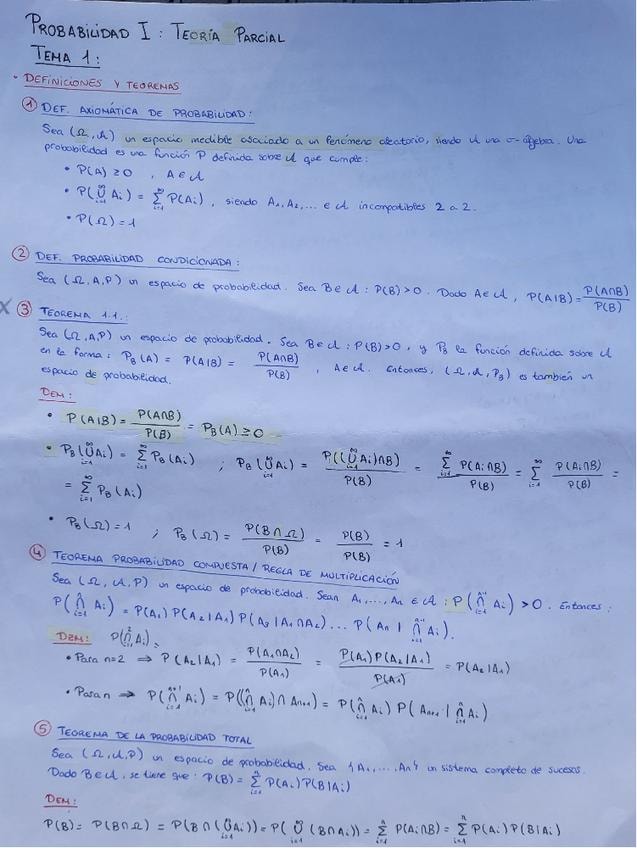 PROBABILIDAD I : TEORÍA PARCIAL
TEMA 1:
• DEFINICIONES Y TEOREMAS
① DEF. AXIOMÁTICA DE PROBABILIDAD:
Sea (Ω, 𝒜) un espacio medible asociado a un fenómeno aleatorio, siendo 𝒜 una σ-álgebra. Una
probabilidad es una función P definida sobre 𝒜 que cumple:
• P(A) ≥ 0 , A ∈ 𝒜
• P(⋃_{i=1}^{∞} Ai) = ∑_{i=1}^{∞} P(Ai) , siendo A₁, A₂, ... ∈ 𝒜 incompatibles 2 a 2.
• P(Ω) = 1
② DEF. PROBABILIDAD CONDICIONADA:
Sea (Ω, A, P) un espacio de probabilidad. Sea B ∈ 𝒜 : P(B) > 0. Dado A ∈ 𝒜, P(A|B) = P(A∩B)/P(B)
X ③ TEOREMA 1.1.:
Sea (Ω, A, P) un espacio de probabilidad. Sea B ∈ 𝒜 : P(B) > 0, y P_B la función definida sobre 𝒜
en la forma: P_B(A) = P(A|B) = P(A∩B)/P(B) , A ∈ 𝒜. Entonces, (Ω, 𝒜, P_B) es también un
espacio de probabilidad.
DEM:
• P(A|B) = P(A∩B)/P(B) = P_B(A) ≥ 0
• P_B(⋃_{i=1}^{∞} Ai) = ∑_{i=1}^{∞} P_B(Ai) ; P_B(⋃_{i=1}^{∞} Ai) = P((⋃_{i=1}^{∞} Ai)∩B)/P(B) = ∑_{i=1}^{∞} P(Ai∩B)/P(B) = ∑_{i=1}^{∞} P(Ai∩B)/P(B) =
= ∑_{i=1}^{∞} P_B(Ai)
• P_B(Ω) = 1 ; P_B(Ω) = P(B∩Ω)/P(B) = P(B)/P(B) = 1
④ TEOREMA PROBABILIDAD COMPUESTA / REGLA DE MULTIPLICACIÓN
Sea (Ω, 𝒜, P) un espacio de probabilidad. Sean A₁, ..., An ∈ 𝒜 : P(⋂_{i=1}^{n-1} Ai) > 0. Entonces:
P(⋂_{i=1}^{n} Ai) = P(A₁) P(A₂|A₁) P(A₃|A₁∩A₂)... P(An | ⋂_{i=1}^{n-1} Ai).
DEM: P(⋂_{i=1}^{2} Ai) =
• Para n=2 ⟹ P(A₂|A₁) = P(A₁∩A₂)/P(A₁) = P(A₁)P(A₂|A₁)/P(A₁) = P(A₂|A₁)
• Para n ⟹ P(⋂_{i=1}^{n+1} Ai) = P((⋂_{i=1}^{n} Ai)∩An+1) = P(⋂_{i=1}^{n} Ai) P(An+1 | ⋂_{i=1}^{n} Ai)
⑤ TEOREMA DE LA PROBABILIDAD TOTAL
Sea (Ω, 𝒜, P) un espacio de probabilidad. Sea {A₁, ..., An} un sistema completo de sucesos.
Dado B ∈ 𝒜, se tiene que: P(B) = ∑_{i=1}^{n} P(Ai)P(B|Ai)
DEM:
P(B) = P(B∩Ω) = P(B∩(⋃_{i=1}^{n} Ai)) = P(⋃_{i=1}^{n} (B∩Ai)) = ∑_{i=1}^{n} P(Ai∩B) = ∑_{i=1}^{n} P(Ai)P(B|Ai)